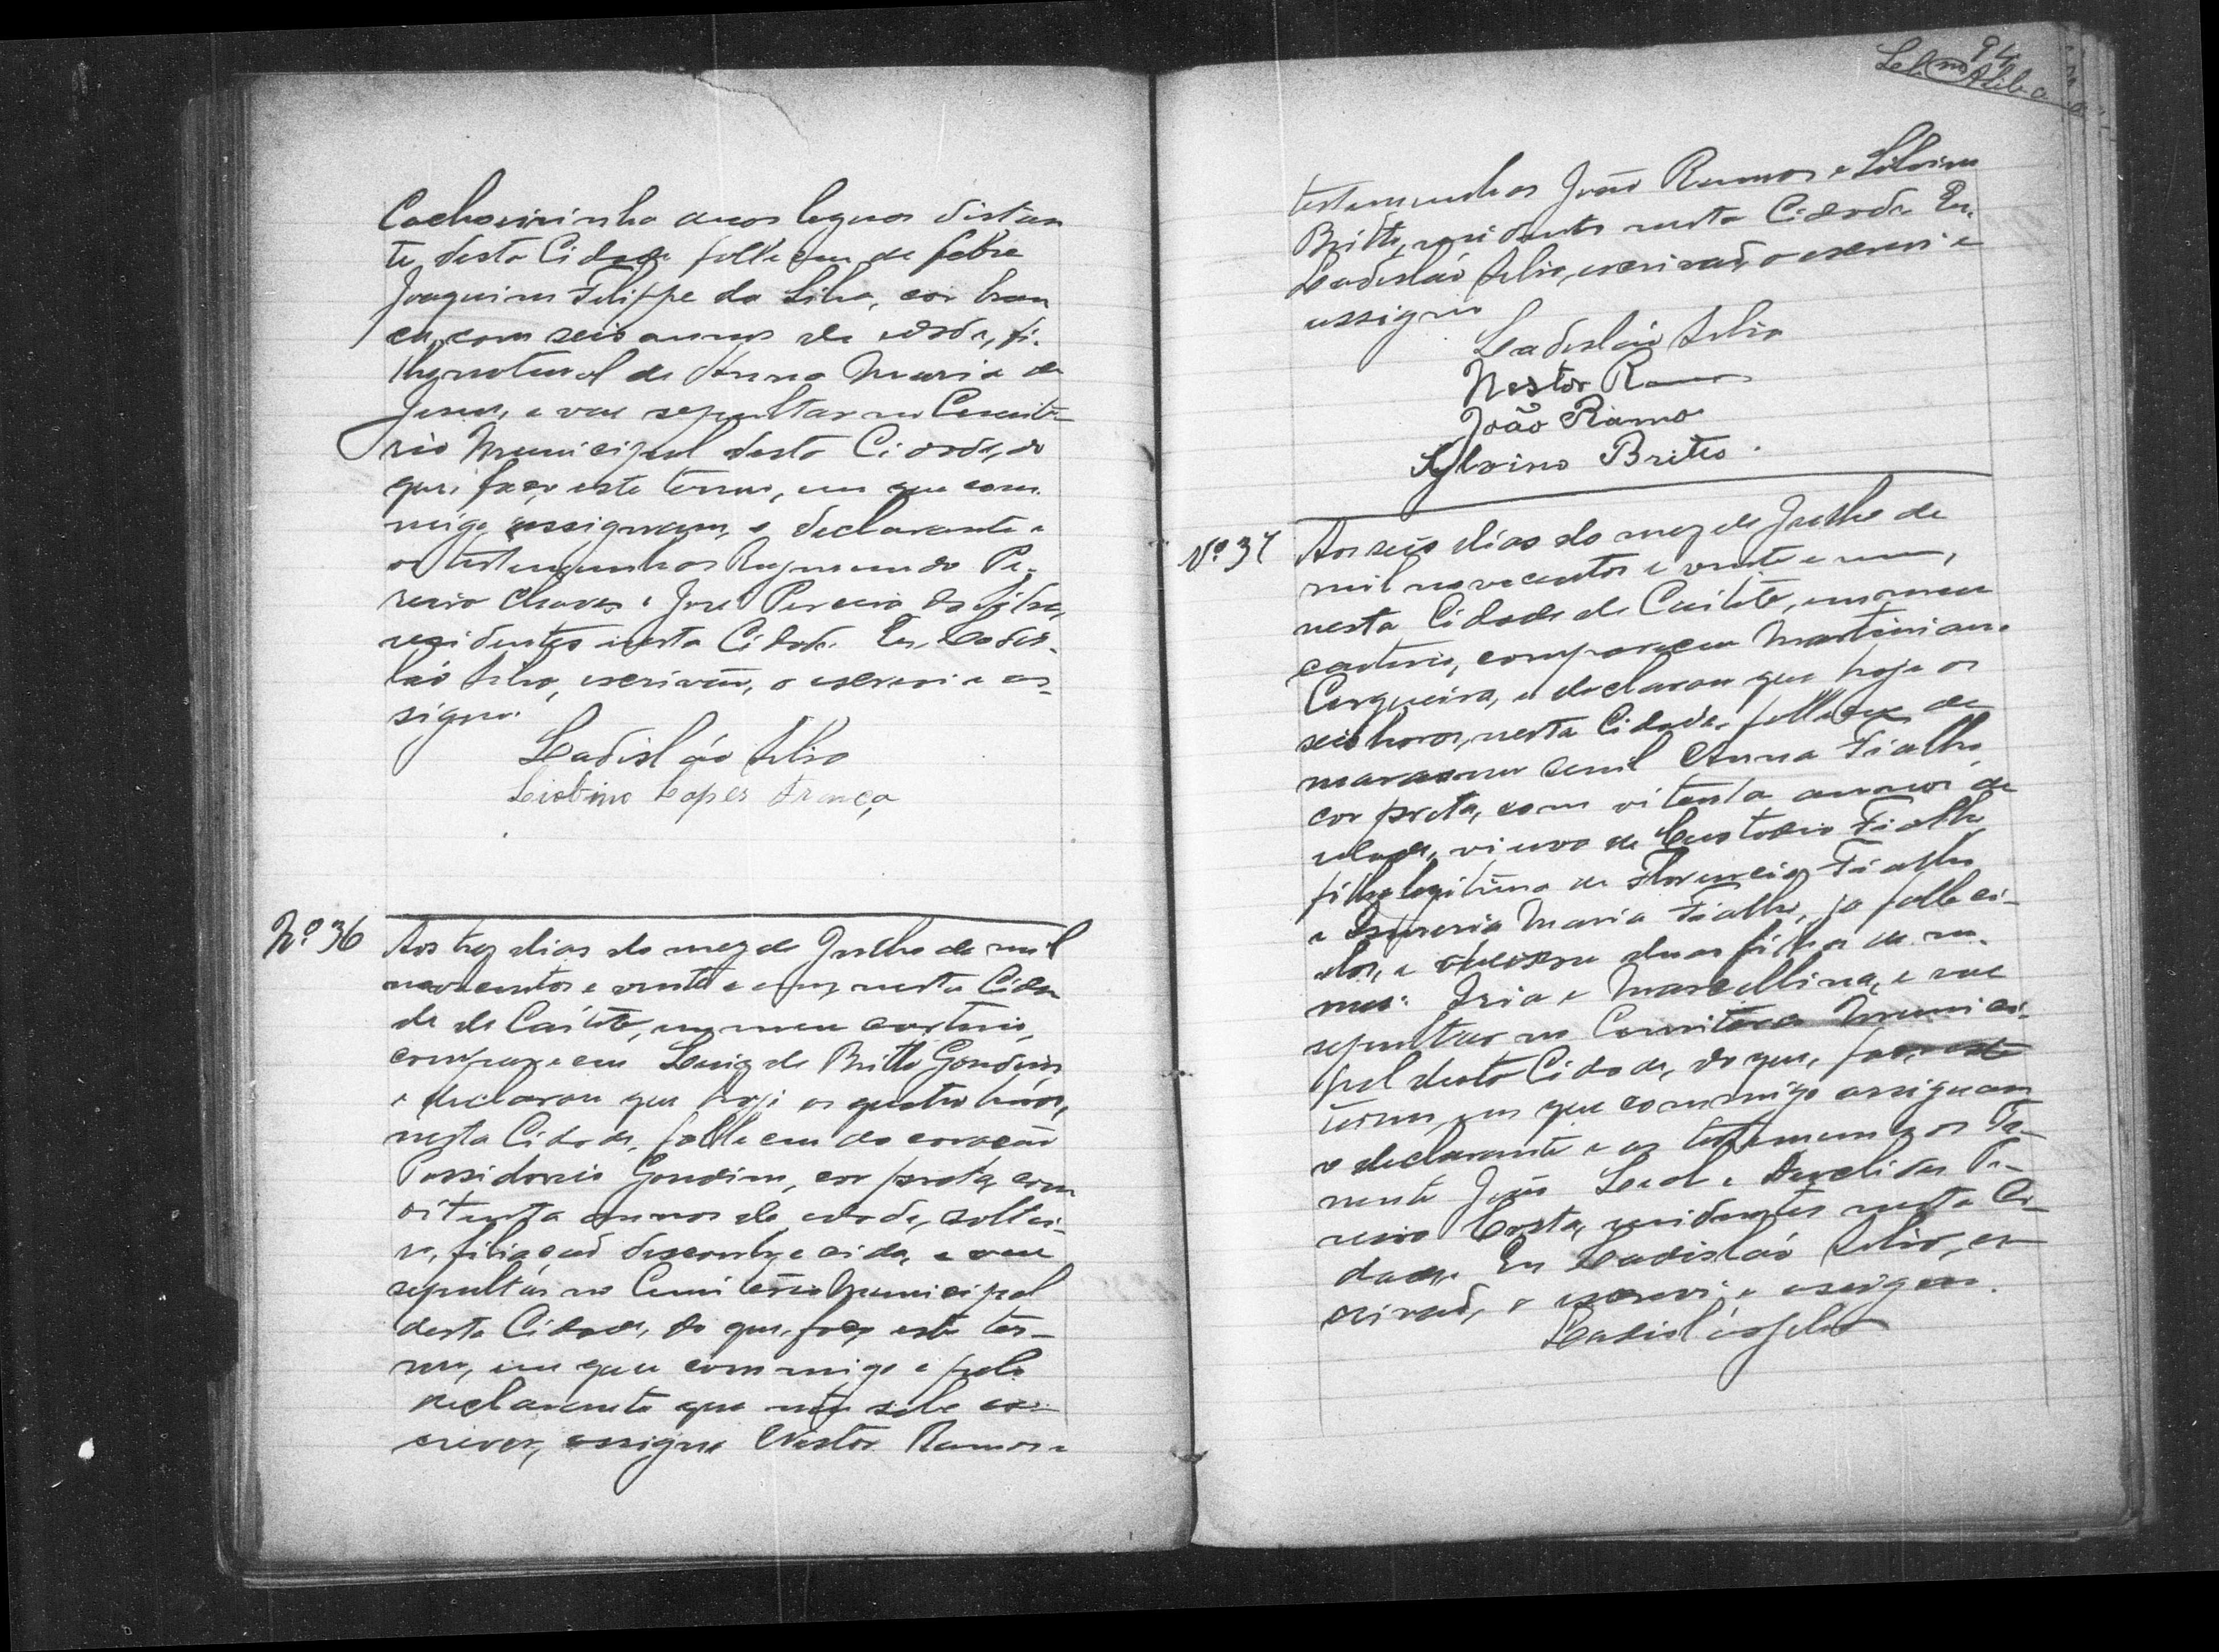 Cachoeirinha duas leguas distan
te desta Cidade falleceu de febre
Joaquim Filippe da Silva, cor bran
ca, com seis annos de edade, fi-
lho natural de Anna Maria de
Jesus, e vae sepultar no Cemite
rio Municipal desta Cidade, do
que, faço este termo, em que com
migo assignam, o declarante e
as testemunhas Raymundo Pe-
reira Chaves e José Pereira da Silva,
residentes nesta Cidade. Eu, Ladis-
láo Lelis, escrivão, o escrevi e as-
signo.
Ladisláo Lelis
Lopes França
Nº 36
Aos trez dias do mez de Julho de mil
novecentos e vinte e um, nesta Cida
de de Caiteté, em meu cartorio,
compareceu Luiz de Britto Gondim
e declarou que hoje as quatro horas,
nesta Cidade, falleceu do coração
Possidonio Gondim, cor preta, com
oitenta annos de edade, soltei-
ro, filiação desconhecida, e vae
sepultar no Cemiterio Municipal
desta Cidade, do que, faço este ter-
mo, em que commigo e pelo
declarante que não sabe es-
crever, assigna Nestor Ramos e
94
testemunhas João Ramos e Silvino
Britto, residentes nesta Cidade. Eu,
Ladisláo Lelis, escrivão, o escrevi e
assigno
Ladisláo Lelis
Nestor Ramos
João Ramos
Sylvino Britto.
Nº 37
Aos seis dias do mez de Julho de
mil novecentos e vinte e um,
nesta Cidade de Caiteté, em meu
cartorio, compareceu Martiniano
Cerqueira, e declarou que hoje as
seis horas, nesta Cidade, falleceu de
marasmo senil Anna Fialho,
cor preta, com oitenta annos de
edade, viuva de Custodio Fialho
filha legitima de Florencio Fialho
e Maria Fialho, ja falleci-
dos, e deixou duas filhas de no-
mes: Iria e Marcellina, e vae
sepultar no Cemiterio Munici-
pal desta Cidade, do que, faço este
termo, em que commigo assignam
o declarante e as testemunhas Te-
nente João Leal e Pe-
reira Costa, residentes nesta Ci-
dade. Eu Ladisláo Lelis, es-
crivão, o escrevi e assigno.
Ladisláo Lelis